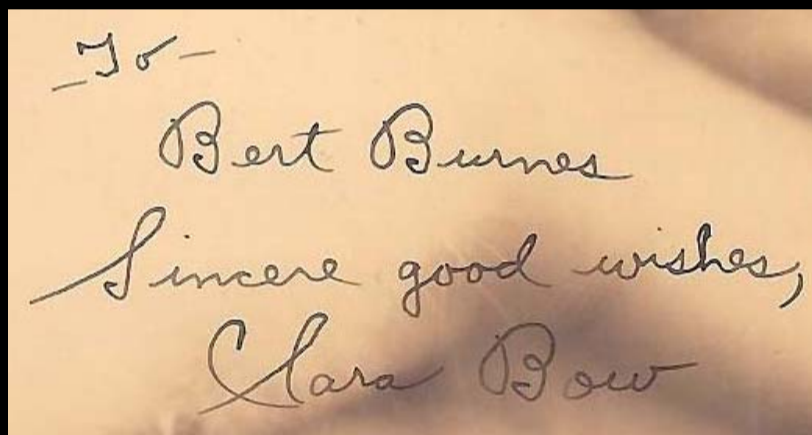 -To-
Bert Burnes
Sincere good wishes,
Clara Bow